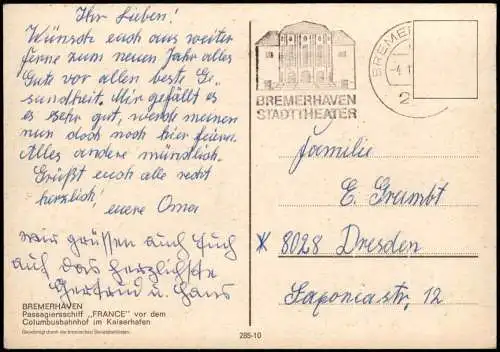 Ihr Lieben!
Wünsche euch aus weiter
ferne zum neuen Jahr alles
Gute vor allen beste Ge-
sundheit. Mir gefällt es
es sehr gut, werde meinen
nun doch noch hier feiern.
Alles andere mündlich.
Grüßt euch alle recht
herzlich!
eure Oma
Wir grüssen auch Euch
auf das herzlichste
Gertrud u. Hans
BREMERHAVEN
Passagierschiff „FRANCE" vor dem
Columbusbahnhof im Kaiserhafen
BREMERHAVEN
STADTTHEATER
BREME
-4.1
2
Familie
E. Grambt
* 8028 Dresden
Saxoniastr. 12
285-10